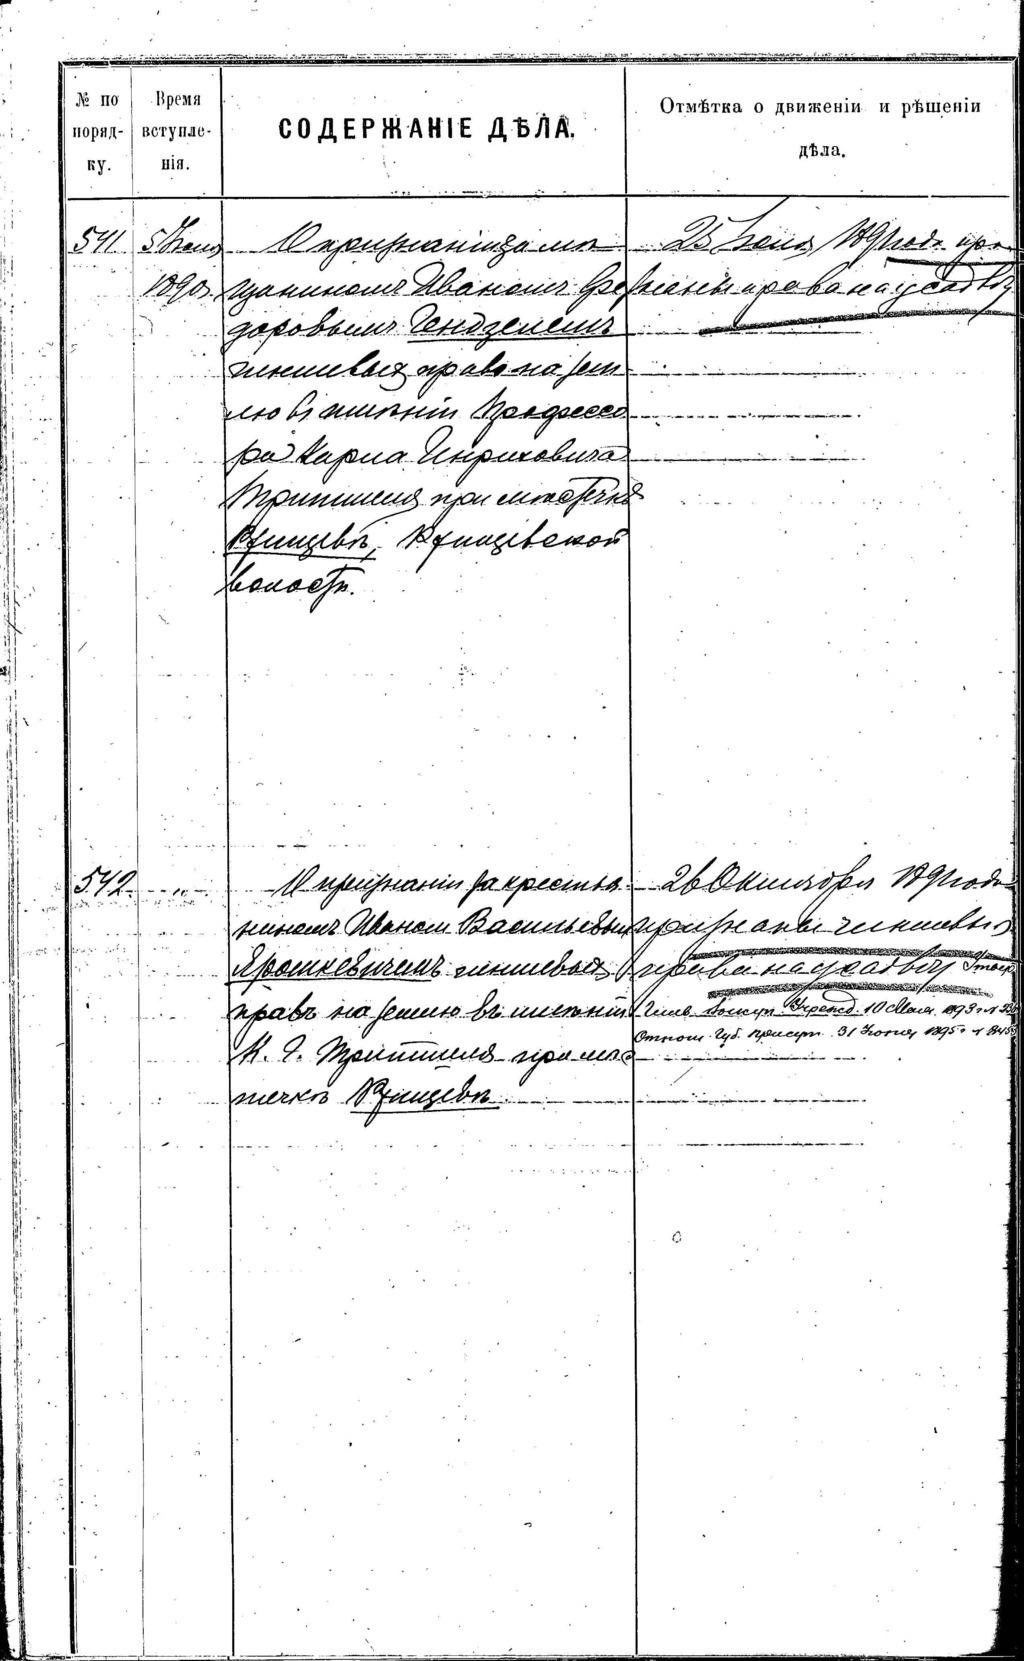 № по поряд- ку.
Время вступле- нія.
СОДЕРЖАНІЕ ДѢЛА.
Отмѣтка о движеніи и рѣшеніи дѣла.
541
5 Іюля
1890
О признаніи за мѣ-
щаниномъ Иваномъ Ѳе
доровымъ
чиншевыхъ правъ на зем
лю въ имѣніи Профессо
ра Карла Генриховича
Гриттеля при мѣстечкѣ
Ржищевѣ, Ржищевской
волости.
25 Іюня 1891 года при
знаны права на усадьбу
542
О признаніи за крестья
ниномъ Иваномъ Васильевым
Ярошкевичемъ чиншевыхъ
правъ на землю въ имѣніи
К. Г. Гриттеля при мѣс
течкѣ Ржищевѣ
26 Октября 1891 года
признаны чиншевыя
права на усадьбу
10 Мая 1893 г.
Отнош. Губ. Присут. 31 1895 г.